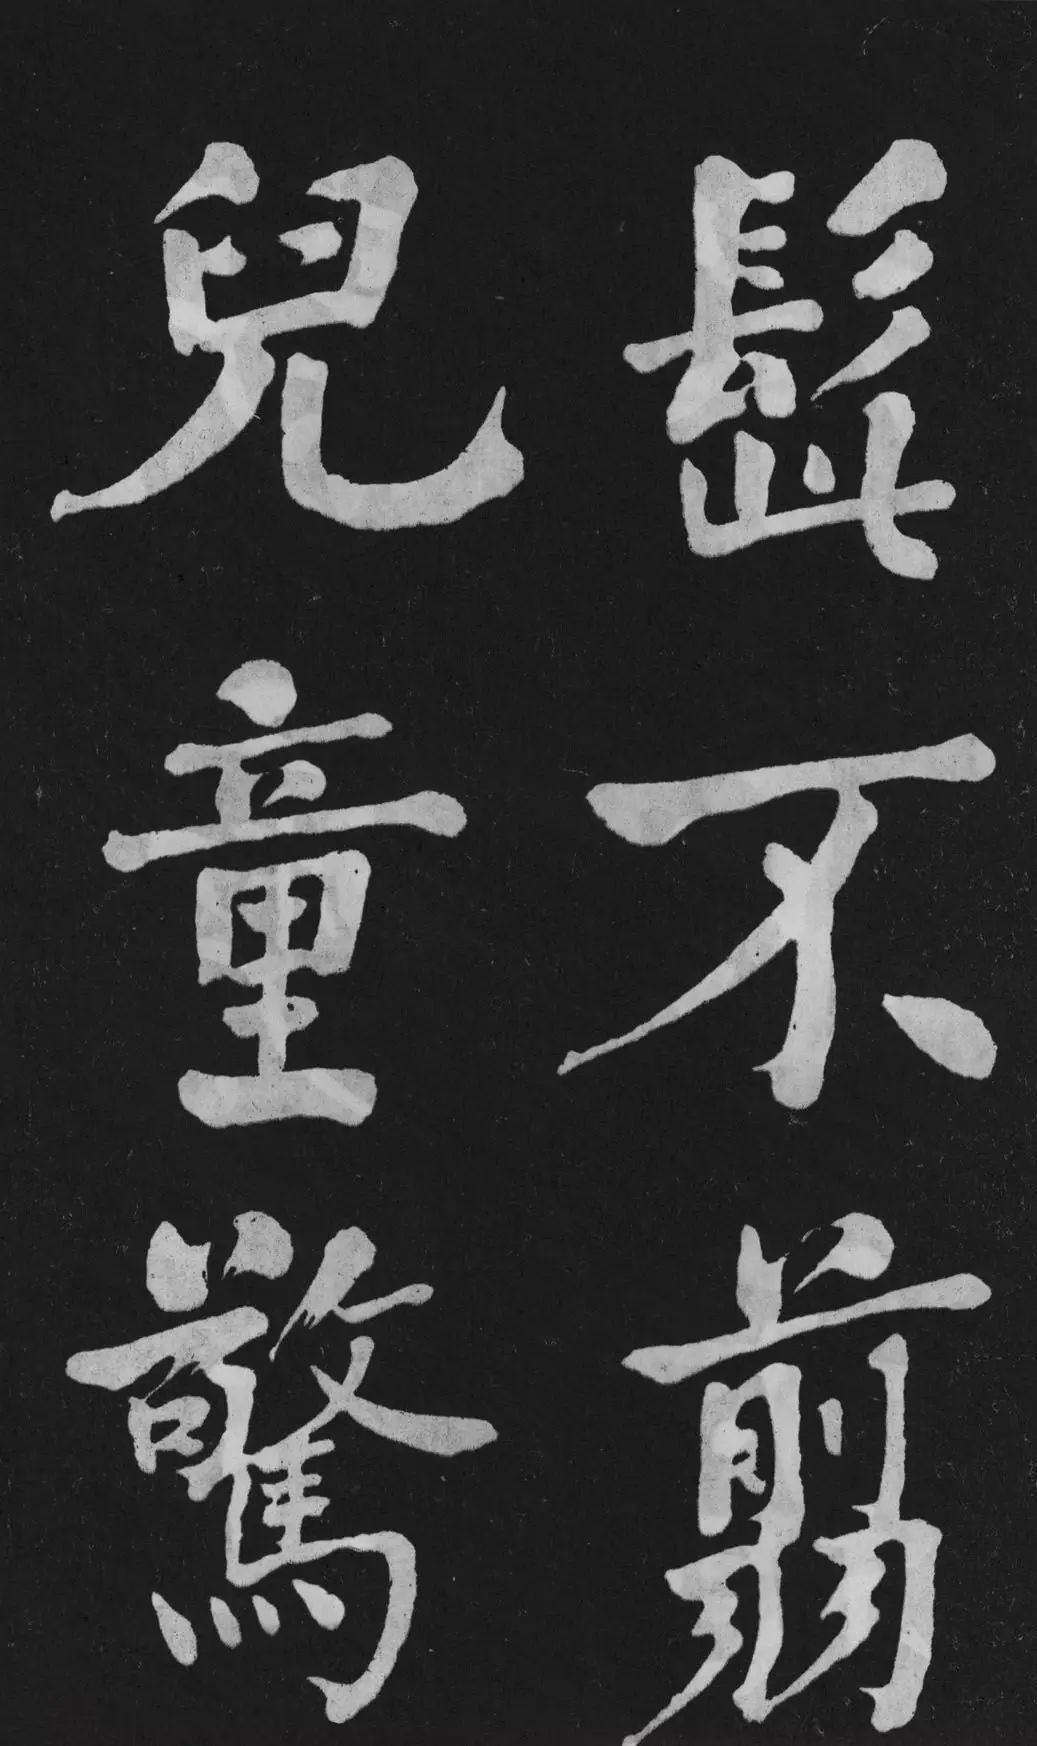 髭不翦
兒童驚